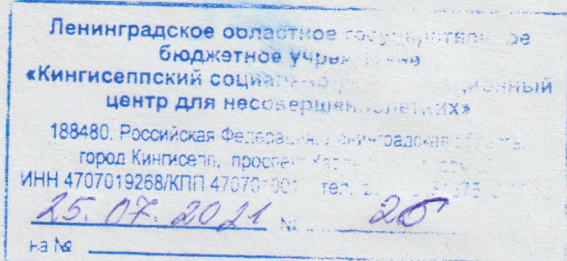 Ленинградское областное государственное
бюджетное учреждение
«Кингисеппский социально-реабилитационный
центр для несовершеннолетних»
188480, Российская Федерация, Ленинградская область,
город Кингисепп, проспект
ИНН 4707019268/КПП 470701001 тел.
25.07.2021 № 26
на №